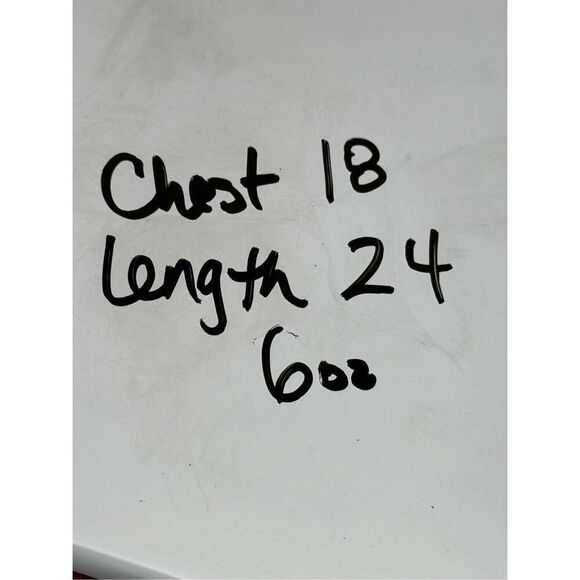 Chest 18
Length 24
6oz